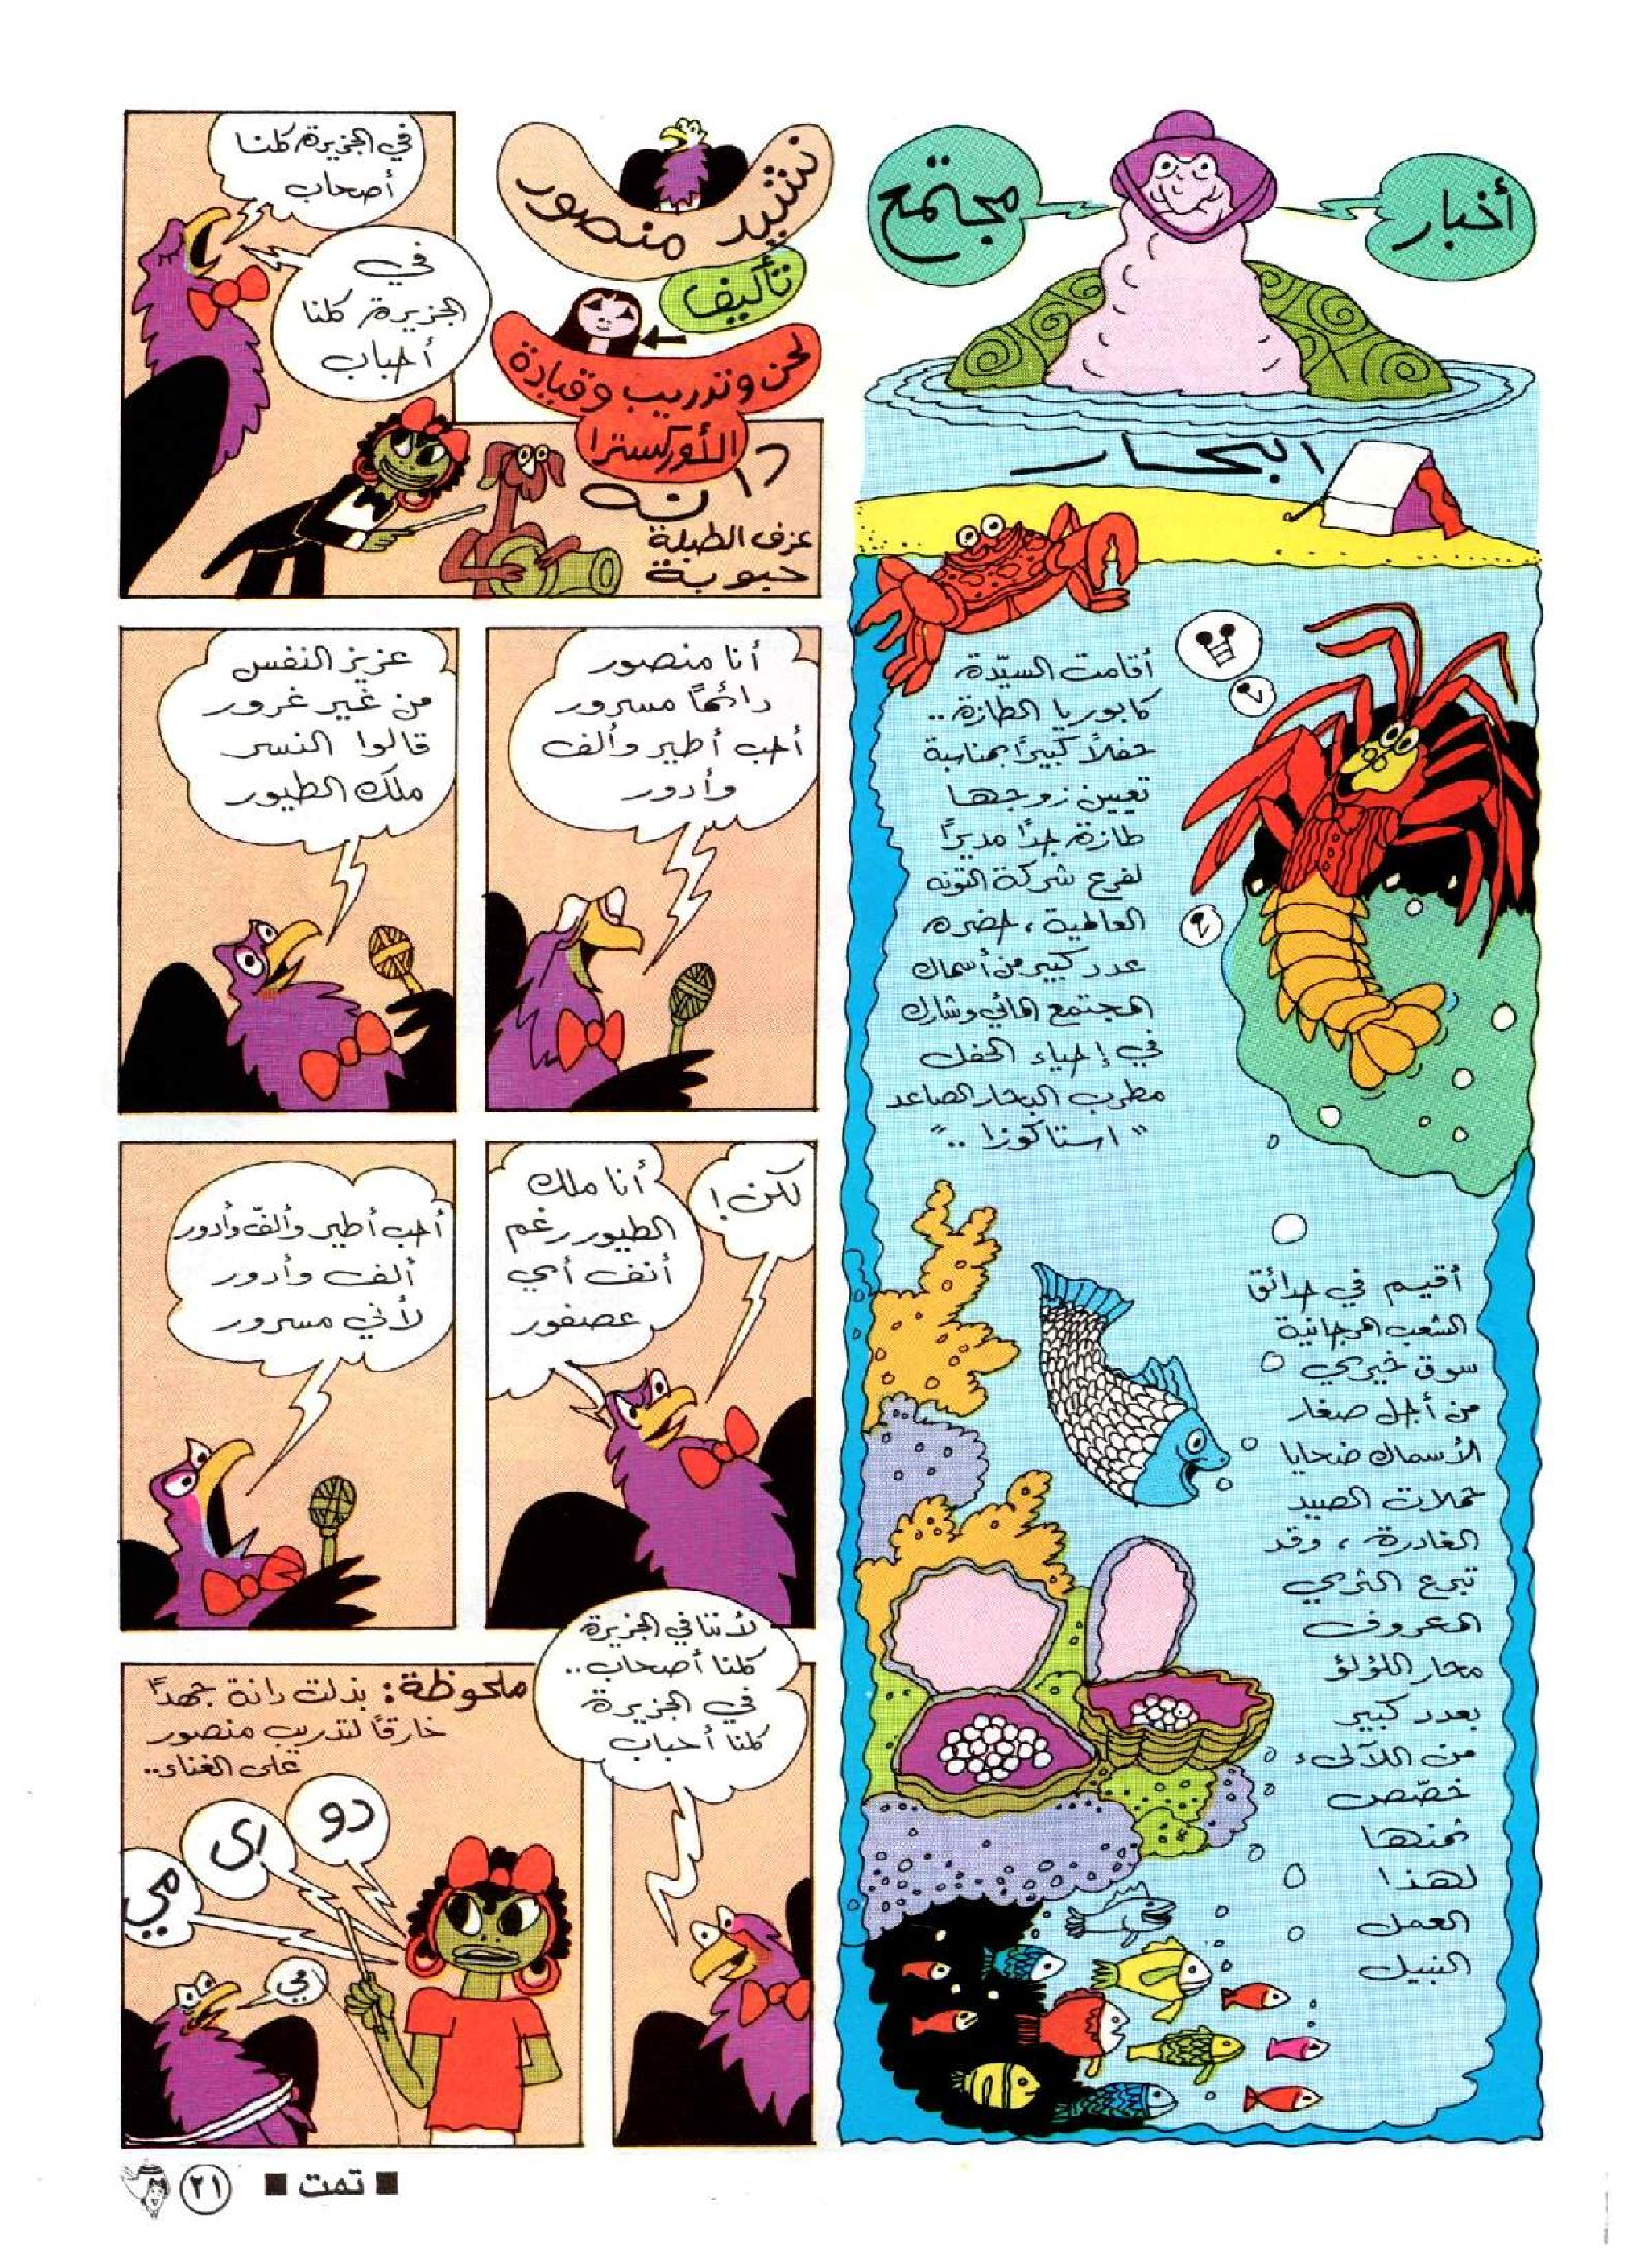 أخبار
مجتمع
البحار
أقامت السيّدة
كابوريا الطازة..
حفلاً كبيرًا بمناسبة
تعيين زوجها
طازة جدًا مديرًا
لفرع شركة التونه
العالمية، حضره
عدد كبير من أسماك
المجتمع المائي وشارك
في إحياء الحفل
مطرب البحار الصاعد
"استاكوزا .."
أقيم في حدائق
الشعب المرجانية
سوق خيري
من أجل صغار
الأسماك ضحايا
حملات الصيد
الغادرة، وقد
تبرع الثري
المعروف
محار اللؤلؤ
بعدد كبير
من اللآلىء
خصّص
ثمنها
لهذا
العمل
النبيل
نشيد منصور
تأليف
لحن وتدريب وقيادة
الأوركسترا
دانه
عزف الطبلة
حبوبة
في الجزيرة كلنا
أصحاب
في
الجزيرة كلنا
أحباب
أنا منصور
دائمًا مسرور
أحب أطير وألف
وأدور
عزيز النفس
من غير غرور
قالوا النسر
ملك الطيور
لكن!
أنا ملك
الطيور رغم
أنف أي
عصفور
أحب أطير وألفّ وأدور
ألف وأدور
لأني مسرور
لأننا في الجزيرة
كلنا أصحاب..
في الجزيرة
كلنا أحباب
ملحوظة: بذلت دانة جهدًا
خارقًا لتدريب منصور
على الغناء..
دو
ري
مي
■ تمت ■
٢١